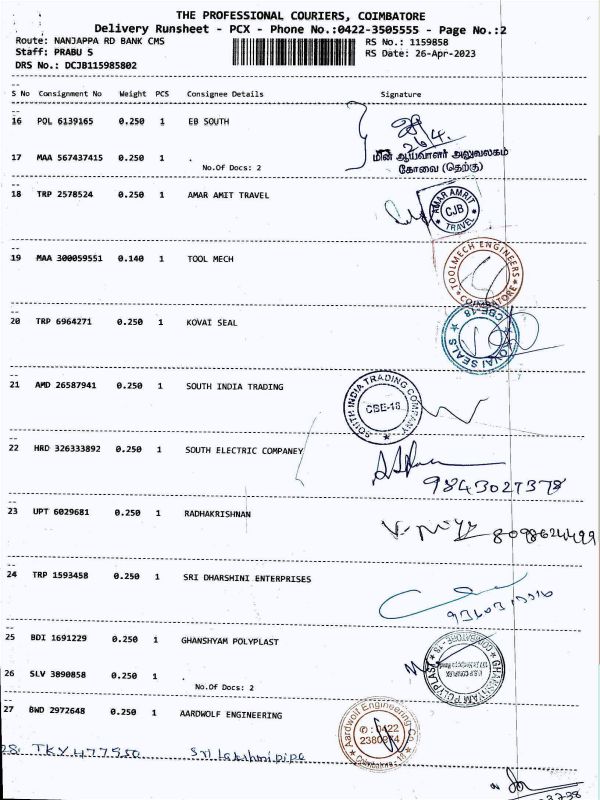 THE PROFESSIONAL COURIERS, COIMBATORE
Delivery Runsheet - PCX - Phone No.:0422-3505555 - Page No.:2
Route: NANJAPPA RD BANK CMS
RS No.: 1159858
Staff: PRABU S
RS Date: 26-Apr-2023
DRS No.: DCJB115985802
S No Consignment No Weight PCS Consignee Details Signature
16 POL 6139165 0.250 1 EB SOUTH
26/4.
17 MAA 567437415 0.250 1 .
No.Of Docs: 2
மின் ஆய்வாளர் அலுவலகம்
கோவை (தெற்கு)
18 TRP 2578524 0.250 1 AMAR AMIT TRAVEL
AMAR AMRIT TRAVEL
CJB
19 MAA 300059551 0.140 1 TOOL MECH
TOOLMECH ENGINEERS
COIMBATORE
20 TRP 6964271 0.250 1 KOVAI SEAL
KOVAI SEALS
CBE-18
21 AMD 26587941 0.250 1 SOUTH INDIA TRADING
SOUTH INDIA TRADING COMPANY
CBE-18
22 HRD 326333892 0.250 1 SOUTH ELECTRIC COMPANEY
9843027378
23 UPT 6029681 0.250 1 RADHAKRISHNAN
8098624499
24 TRP 1593458 0.250 1 SRI DHARSHINI ENTERPRISES
25 BDI 1691229 0.250 1 GHANSHYAM POLYPLAST
GHANSHYAM POLYPLAST
COIMBATORE - 18
26 SLV 3890858 0.250 1 .
No.Of Docs: 2
27 BWD 2972648 0.250 1 AARDWOLF ENGINEERING
Aardwolf Engineering Co.
0422
2380974
Coimbatore - 18
28. TKY 477550 Sri Lakshmi pipe